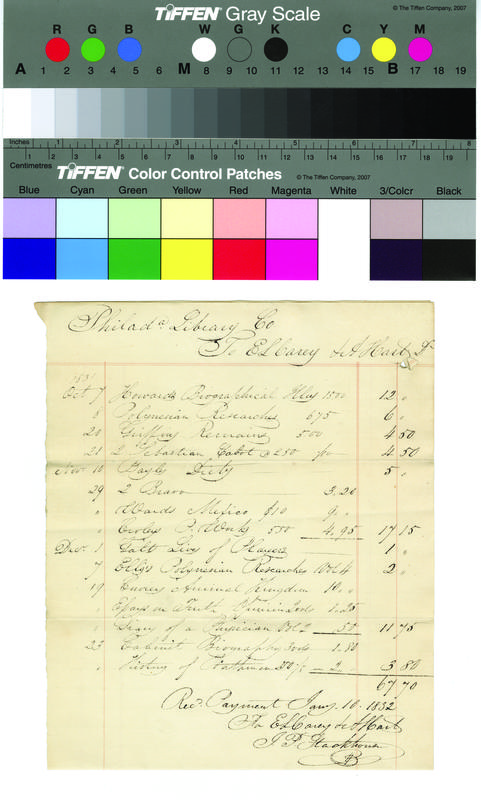 TIFFEN® Gray Scale
© The Tiffen Company, 2007
R G B W G K C Y M
A 1 2 3 4 5 6 M 8 9 10 11 12 13 14 15 B 17 18 19
Inches 1 2 3 4 5 6 7 8
Centimetres 1 2 3 4 5 6 7 8 9 10 11 12 13 14 15 16 17 18 19
TIFFEN® Color Control Patches © The Tiffen Company, 2007
Blue Cyan Green Yellow Red Magenta White 3/Color Black
Philada. Library Co
To E L Carey & A Hart Dr
1831
Oct 7 Howards Biographical 1500 12 "
8 Polynesian Researches 675 6 "
20 Griffins Remains 500 4 50
21 2 Sebastian Cabot @ 250 4 50
Nov 10 Dicty 5 "
29 2 Bravo 3.20
" Wards Mexico $10 9 "
" Works 550 4.95 17 15
Dec. 1 Galt Lives of Players 1 "
7 Ellis Polynesian Researches Vol 4 2 "
19 Cuviers Animal Kingdom 10 "
" Essays on Truth 1.25
" Diary of a Physician Vol 2 50 11 75
23 Cabinet Biography 1.80
" History of 2 " 3 80
67 70
Recd. Payment Jany. 10. 1832
For E L Carey & A Hart